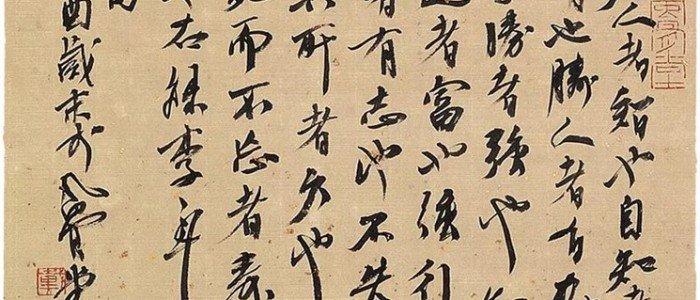 人者智也自知者
也勝人者有力
勝者強也
者富也強行
者有志也不失
其所者久也
死而不忘者壽
右錄李耳
酉歲末於風